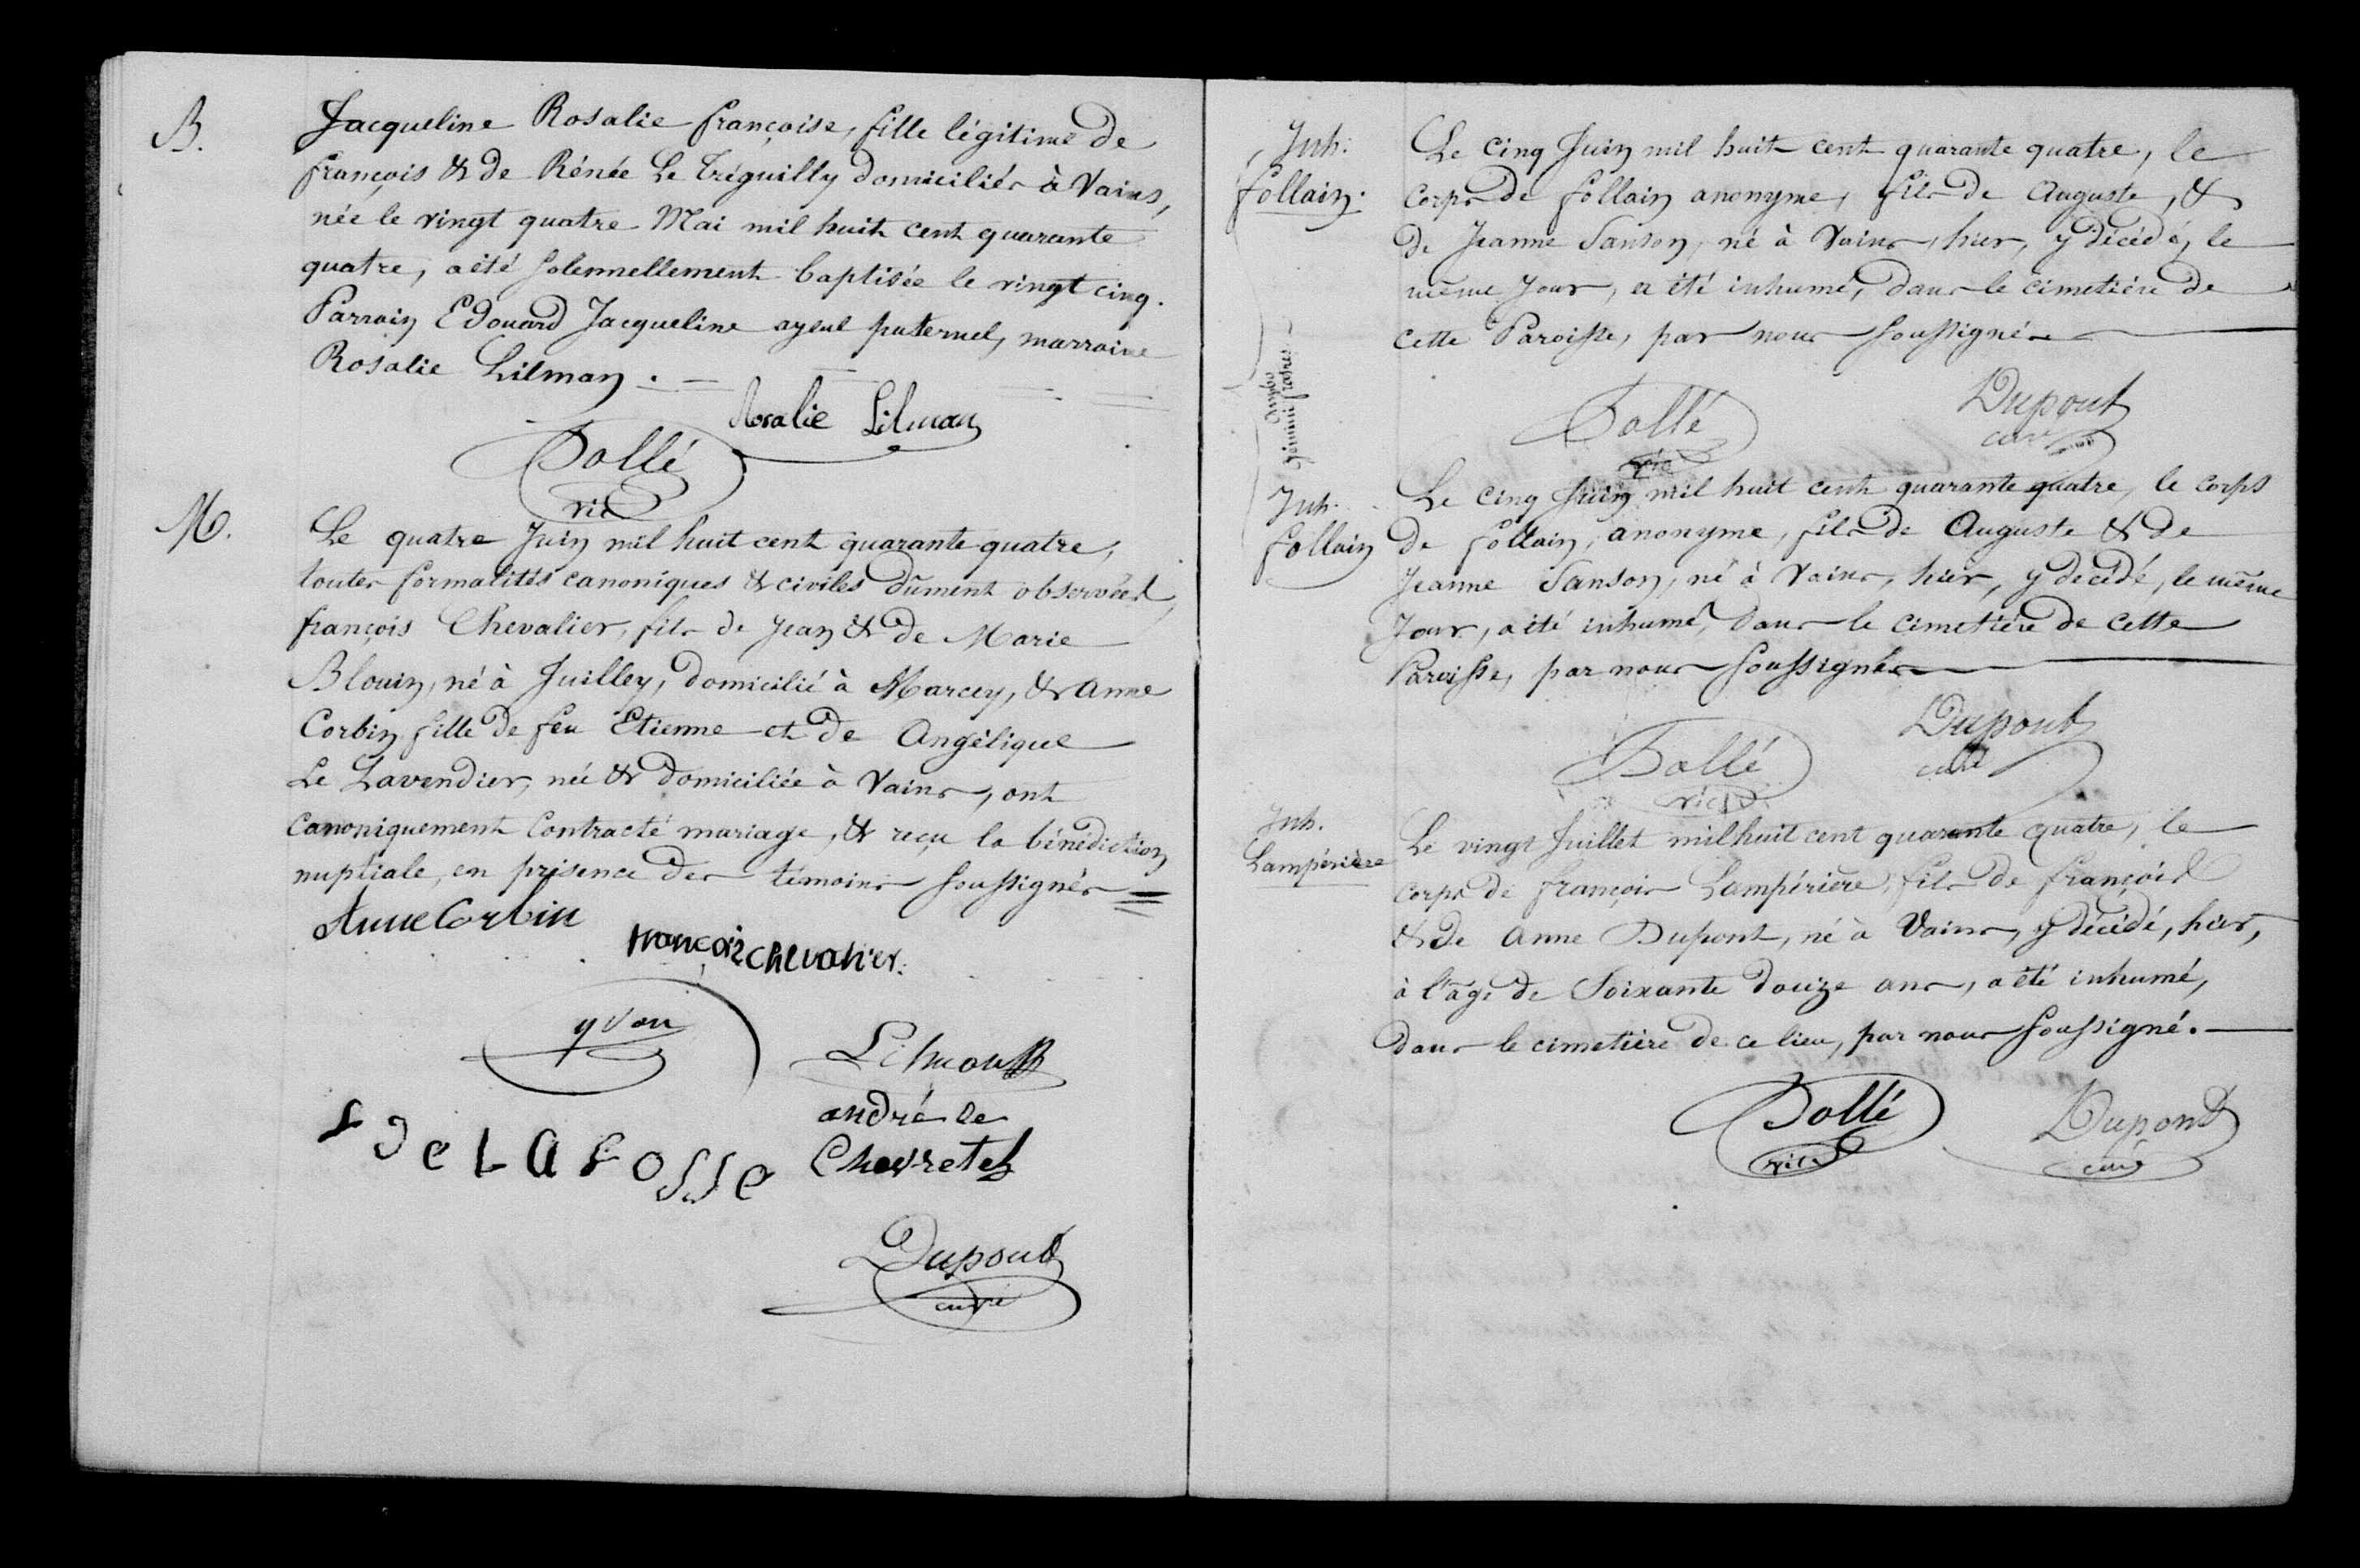 B.
Jacqueline Rosalie françoise, fille légitime de
françois & de Rénée Le Tréguilly domiciliés à Vains,
née le vingt quatre Mai mil huit cent quarante
quatre, a été solennellement baptisée le vingt cinq.
Parrain Edouard Jacqueline ayeul paternel, marraine
Rosalie Lilman.
Rosalie Lilman
Dollé
vic
M.
Le quatre Juin mil huit cent quarante quatre,
toutes formalités canoniques & civiles dûment observées,
françois Chevalier, fils de Jean & de Marie
Blouin, né à Juilley, domicilié à Marcey, & Anne
Corbin fille de feu Etienne et de Angélique
Le Lavendier, née & domiciliée à Vains, ont
canoniquement contracté mariage, & reçu la bénédiction
nuptiale, en présence des témoins soussignés
Anne Corbin
françois chevalier.
yvon
andré de
Chevretel
F deLaFosse
Dupont
curé
Inh:
follain.
Le cinq Juin mil huit cent quarante quatre, le
corps de follain anonyme, fils de Auguste, &
de Jeanne Sanson, né à Vains, hier, y décédé, le
même Jour, a été inhumé, dans le cimetière de
cette Paroisse, par nous soussignés
Ambo
gemini fratres
Dollé
vic
Dupont
curé
Inh.
follain
Le cinq Juin mil huit cent quarante quatre, le corps
de follain, anonyme, fils de Auguste & de
Jeanne Sanson, né à Vains, hier, y décédé, le même
Jour, a été inhumé, dans le cimetière de cette
Paroisse, par nous soussignés
Dollé
vic
Dupont
curé
Inh.
Lampérière
Le vingt Juillet mil huit cent quarante quatre, le
corps de françois Lampérière, fils de françois
& de Anne Dupont, né à Vains, y décédé, hier,
à l'âge de Soixante douze ans, a été inhumé,
dans le cimetière de ce lieu, par nous soussigné.
Dollé
vic
Dupont
curé